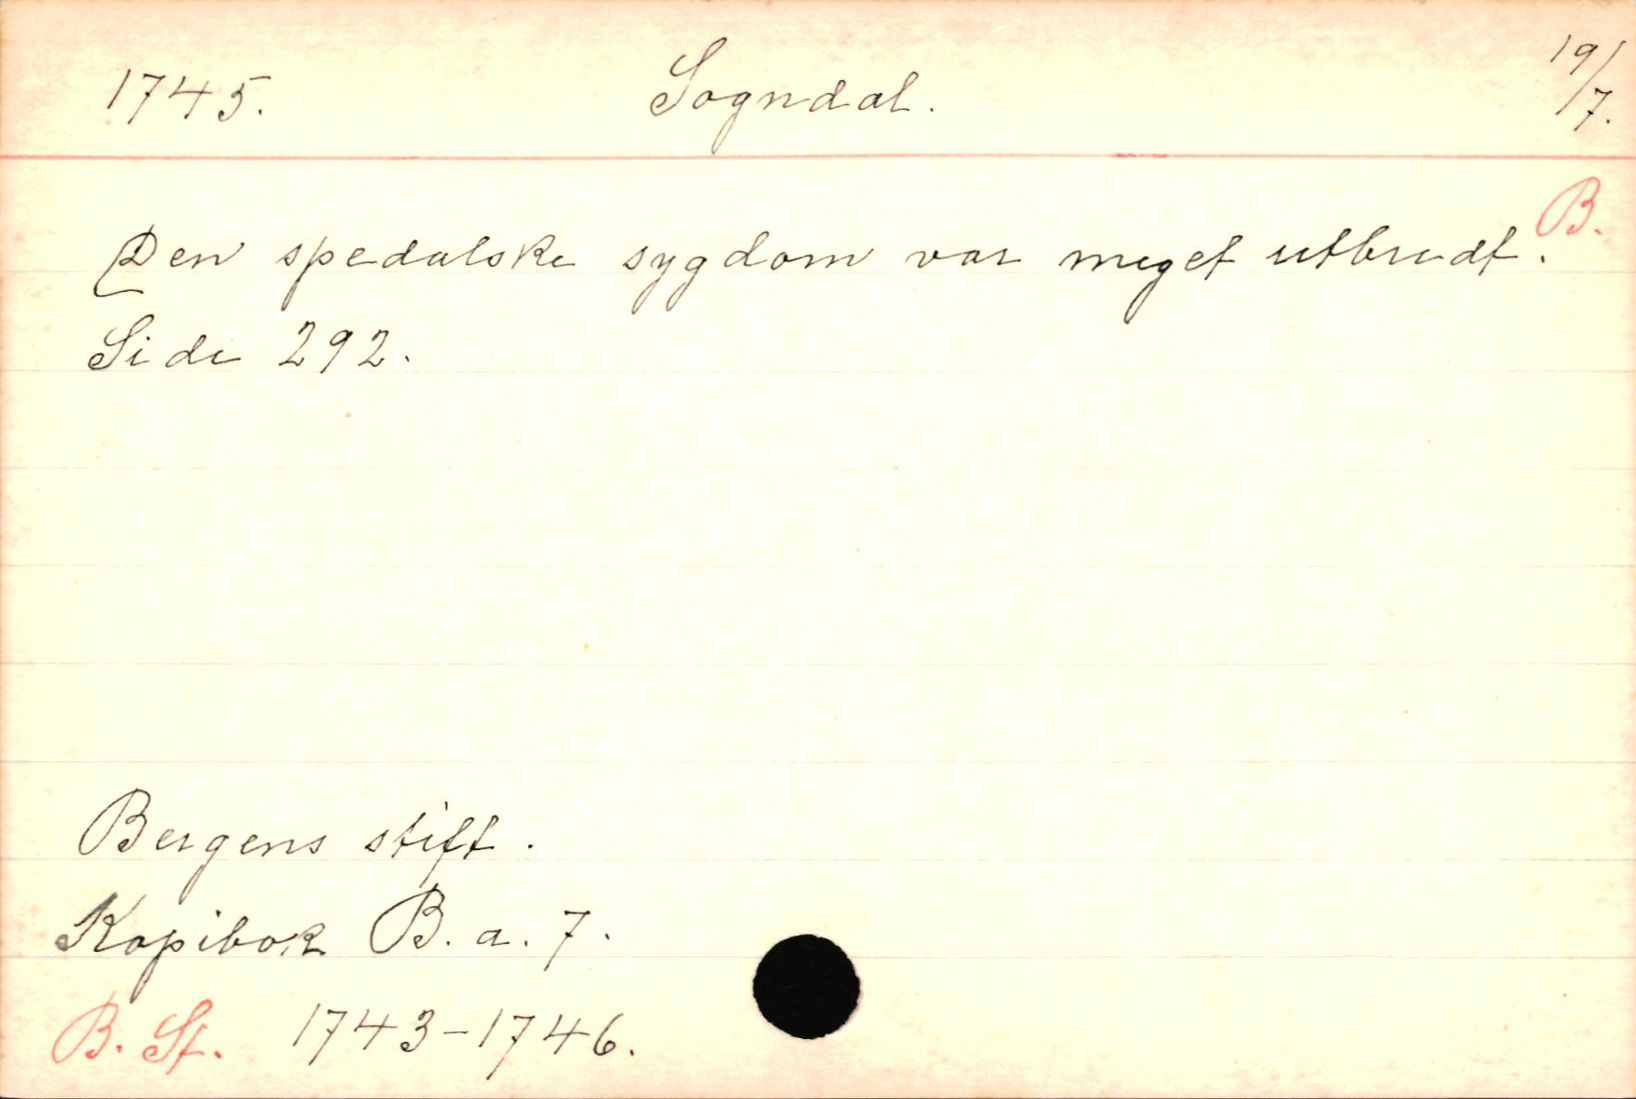 1745. Sogndal. 19/7.
B.
Den spedalske sygdom var meget utbredt.
Side 292.
Bergens stift.
Kopibok B. a. 7.
B. St. 1743-1746.